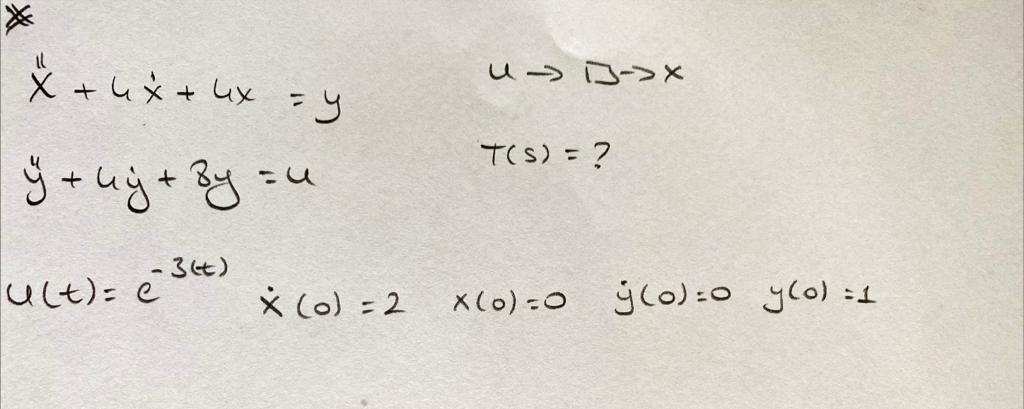 *
ẍ + 4ẋ + 4x = y
u → □ → x
T(s) = ?
ÿ + 4ẏ + 8y = u
u(t) = e^-3(t) ẋ(0) = 2 x(0) = 0 ẏ(0) = 0 y(0) = 1